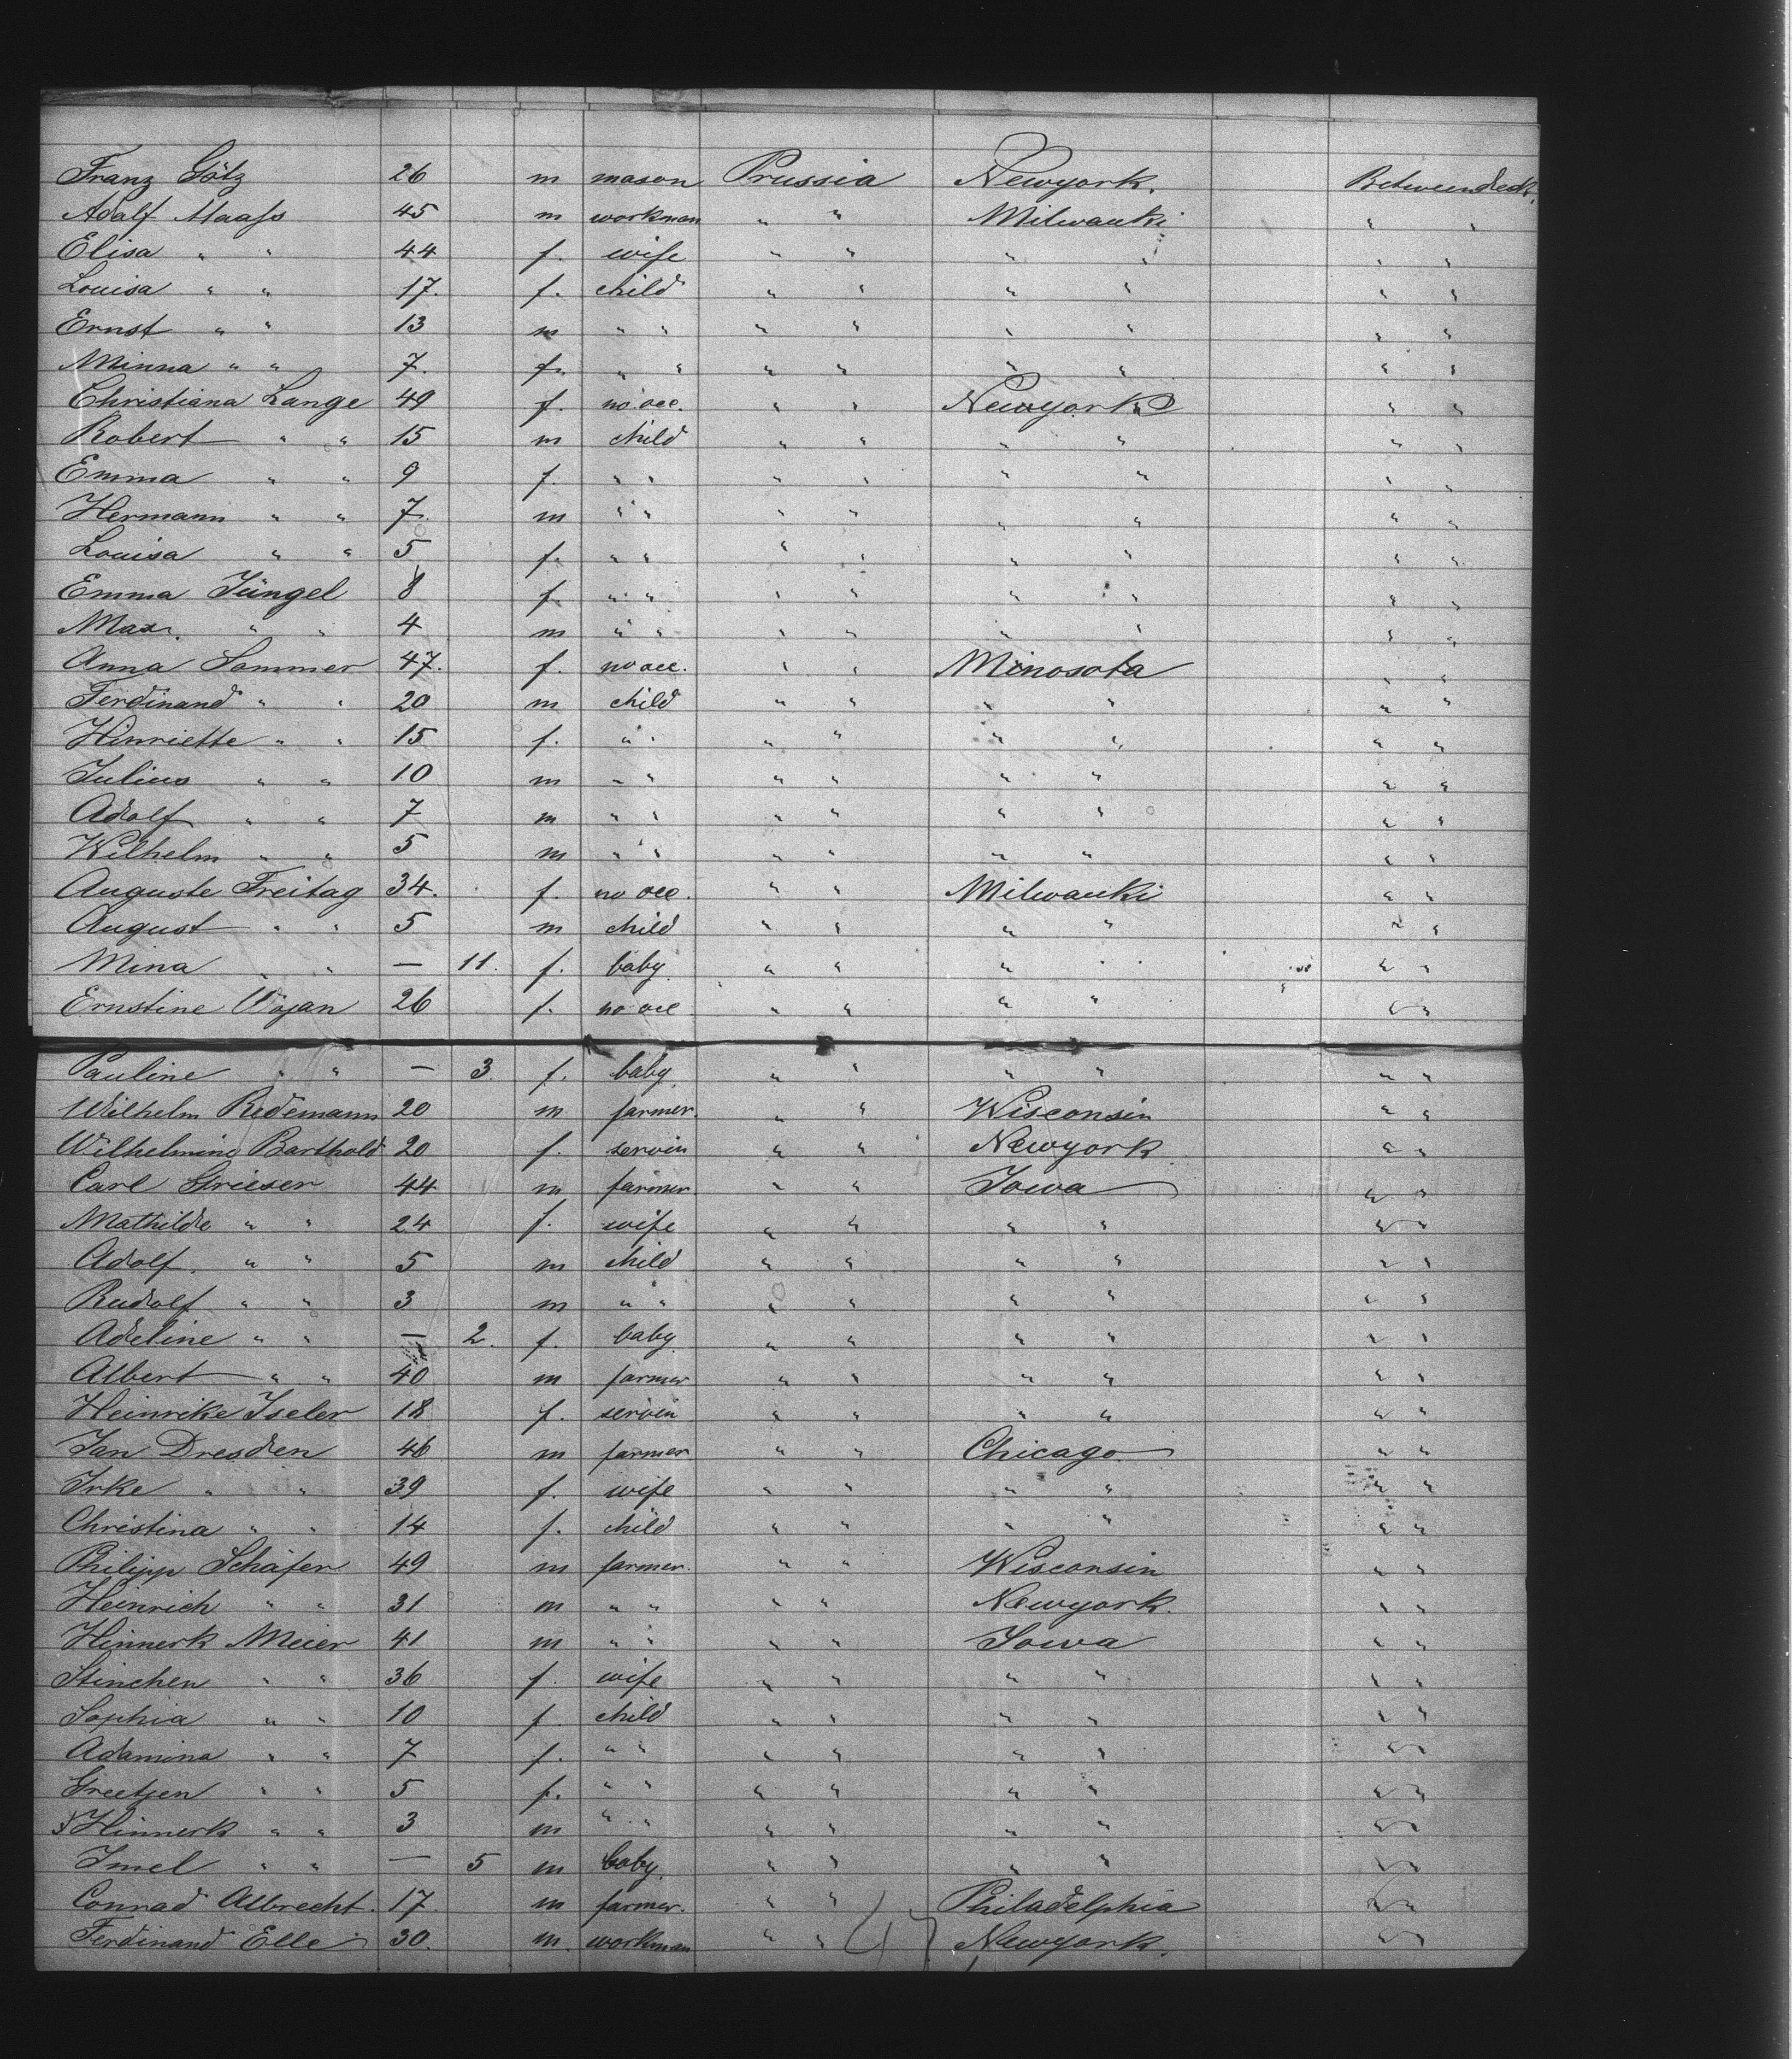 Franz Götz 26 m mason Prussia Newyork. Betweendeck.
Adolf Maaſs 45 m workman " " Milwauki " "
Elisa " " 44 f. wife " " " " " "
Louisa " " 17. f. child " " " " " "
Ernst " " 13 m " " " " " " " "
Minna " " 7. f. " " " " " " " "
Christiana Lange 49 f. no occ. " " Newyork " "
Robert " " 15 m child " " " " " "
Emma " " 9 f. " " " " " " " "
Hermann " " 7. m " " " " " " " "
Louisa " " 5 f. " " " " " " " "
Emma Jüngel 8 f. " " " " " " " "
Max. " " 4 m " " " " " " " "
Anna Sommer 47. f. no occ. " " Minosota " "
Ferdinand " " 20 m child " " " " " "
Hinriette " " 15 f. " " " " " " " "
Julius " " 10 m " " " " " " " "
Adolf " " 7 m " " " " " " " "
Wilhelm " " 5 m " " " " " " " "
Auguste Freitag 34. f. no occ. " " Milwauki " "
August " " 5 m child " " " " " "
Mina " " — 11. f. baby " " " " " "
Ernstine 26 f. no occ " " " " " "
Pauline " " — 3. f. baby " " " " " "
Wilhelm Redemann 20 m farmer. " " Wisconsin " "
Wilhelmine Barthold 20 f. servin " " Newyork " "
Carl Grieser 44 m farmer " " Iowa " "
Mathilde " " 24 f. wife " " " " " "
Adolf. " " 5 m child " " " " " "
Rudolf " " 3 m " " " " " " " "
Adeline " " — 2. f. baby " " " " " "
Albert " " 40 m farmer " " " " " "
Heinrike Iseler 18 f. servin " " " " " "
Jan Dresden 46 m farmer " " Chicago " "
Irke " " 39 f. wife " " " " " "
Christina " " 14 f. child " " " " " "
Philipp Schäfer 49 m farmer. " " Wisconsin " "
Heinrich " " 31 m " " " " Newyork. " "
Hinnerk Meier 41 m " " " " Iowa " "
Stinchen " " 36 f. wife " " " " " "
Sophia " " 10 f. child " " " " " "
Adamina " " 7 f. " " " " " " " "
Greetjen " " 5 f. " " " " " " " "
Hinnerk " " 3 m " " " " " " " "
Imel " " — 5 m baby. " " " " " "
Conrad Albrecht. 17. m farmer. " " Philadelphia " "
Ferdinand Elle 30. m. workman " " 47 Newyork. " "